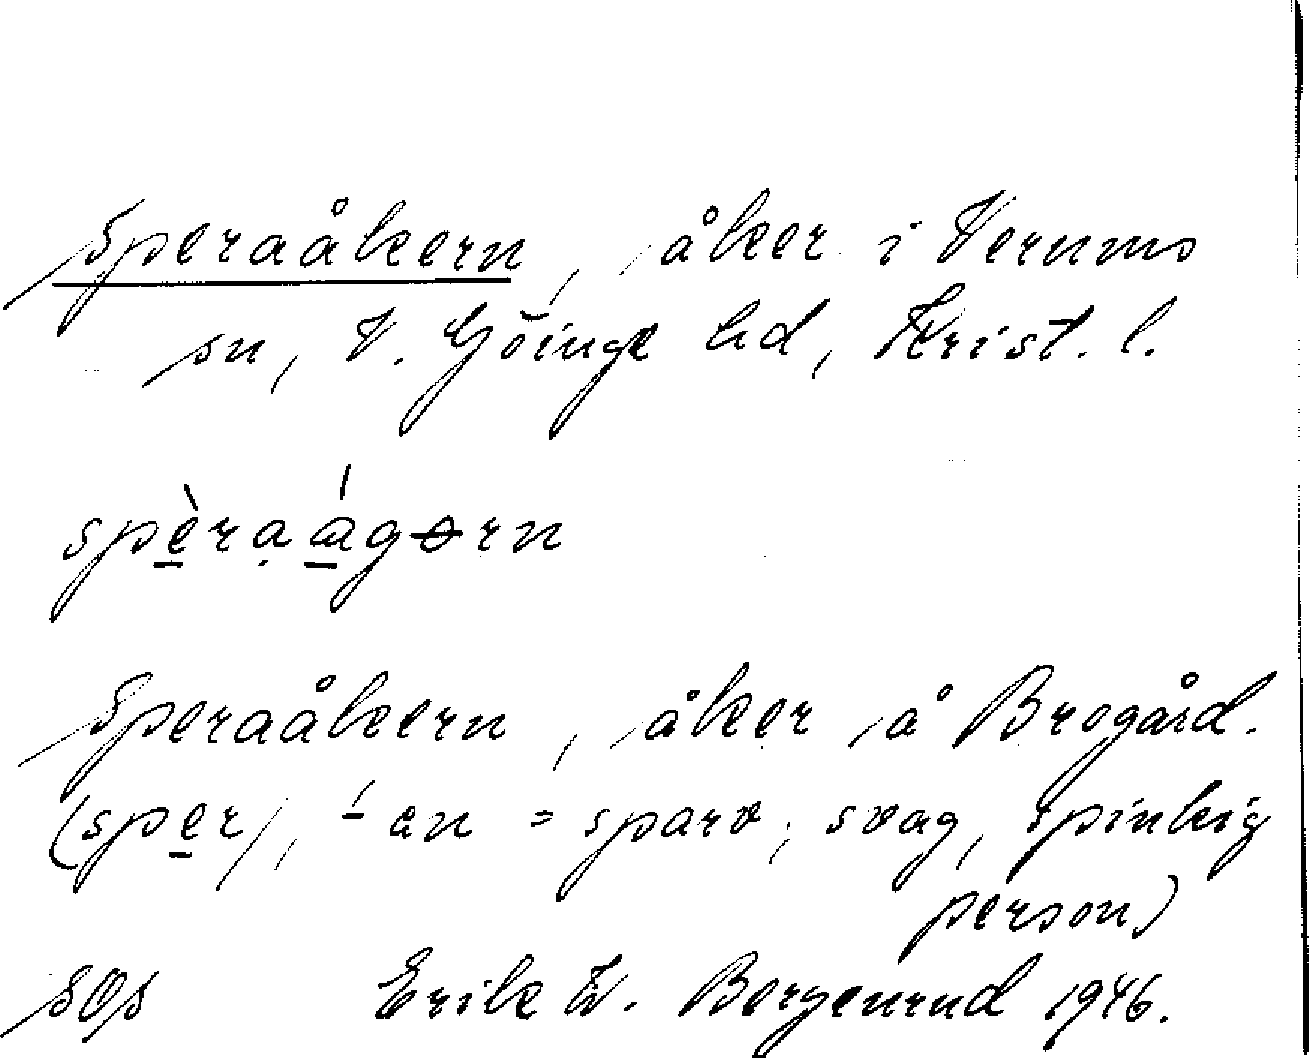 Speraåkern, åker i Verums
sn, V. Göinge hd, Krist. l.
spè̱rạá̱gɵrn
Speraåkern, åker å Brogård.
(spe̱r/, ÷ en = sparv; svag, spinkig
person)
SOS Erik W. Bergenrud 1946.